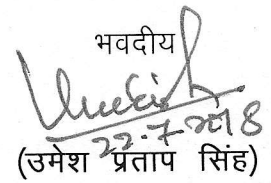 भवदीय
22-7-2018
(उमेश प्रताप सिंह)